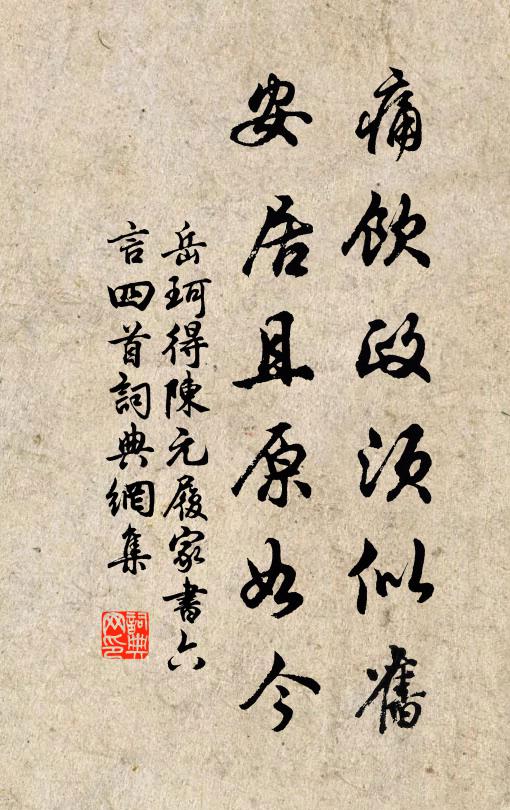 痛飲政須似舊
安居且原如今
岳珂得陳元履家書六
言四首詞典網集
詞典
网印